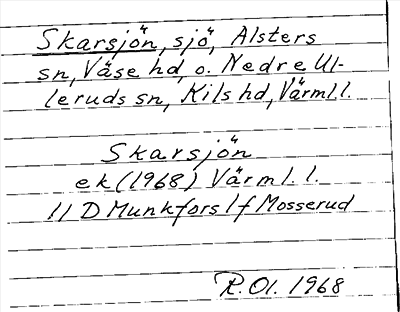 Skarsjön, sjö, Alsters
sn, Väse hd, o. Nedre Ul-
leruds sn, Kils hd, Värml. l.
Skarsjön
ek (1968) Värml. l.
11 D Munkfors 1 f Mosserud
R. Ol. 1968